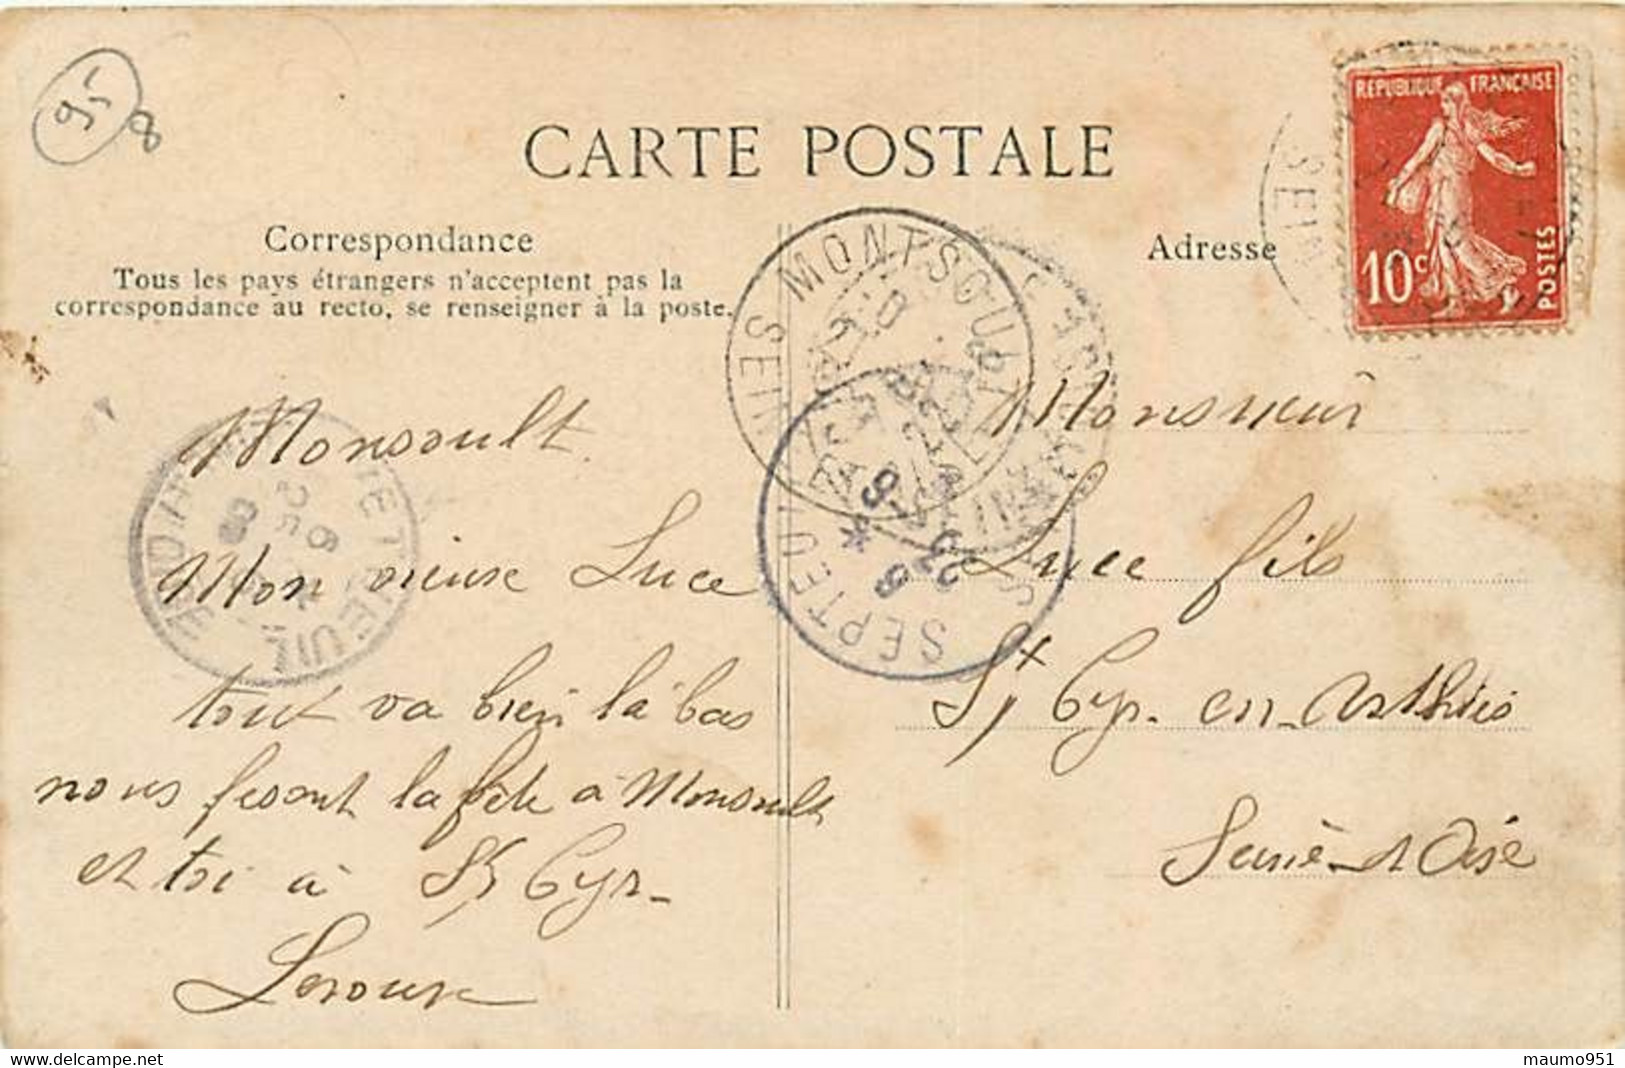 95
8
CARTE POSTALE
REPUBLIQUE FRANÇAISE
10c
POSTES
SEIN
Correspondance
Tous les pays étrangers n'acceptent pas la
correspondance au recto, se renseigner à la poste.
Adresse
MONTSOULT
SEINE
SEPTEUIL
Monsoult
Mon vieux Luce
tout va bien là bas
nous fesont la fête à Monsoult
et toi à St Cyr-
Leroux
Monsieur
Luce fils
St Cyr-en-Arthies
Seine-et Oise
maumo951